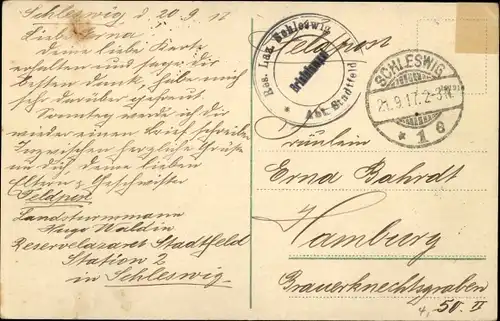 Schleswig d 20.9.17
Liebe Erna
deine liebe Karte
erhalten und sage dir
besten Dank habe mich
sehr darüber gefreut.
Sonntag werde ich dir
wieder einen Brief schreiben
Inzwischen herzliche Grüße
an dich deine lieben
Eltern & Geschwister
Feldpost
Landsturmmann
Hugo Waldin
Reservelazaret Stadtfeld
Station 2
in Schleswig
Res. Laz. Schleswig
Briefstempel
Abt. Stadtfeld
Feldpost
SCHLESWIG
21.9.17.2-3N.
* 1 c
Fräulein
Erna Bahrdt
Hamburg
Brauerknechtsgraben
50. II